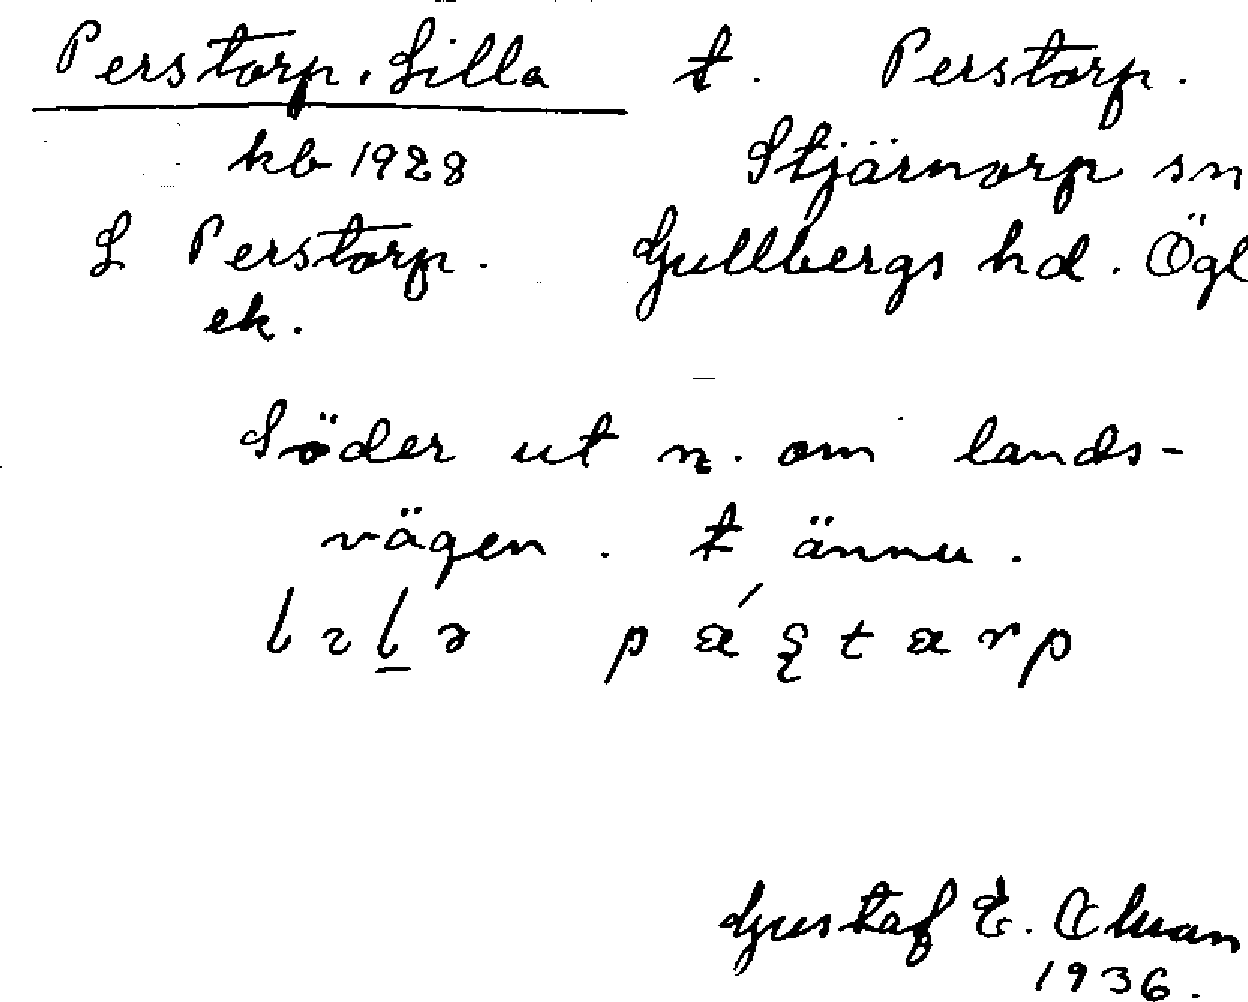 Perstorp, Lilla t. Perstorp.
kb 1928 Stjärnorp sn
L Perstorp. Gullbergs hd. Ögl
ek.
Söder ut n. om lands-
vägen. t ännu.
Gustaf E.
1936.